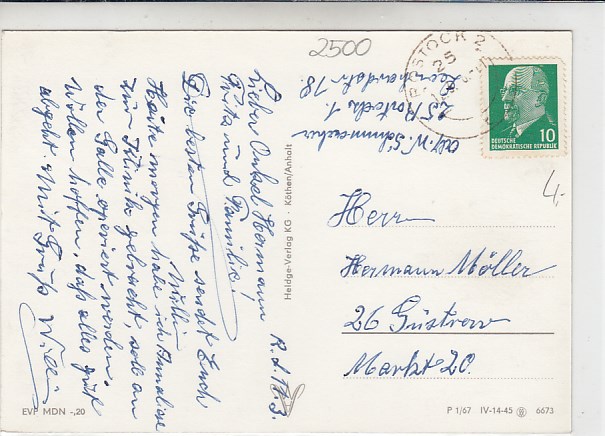 2500
ROSTOCK 2
25
Abs. W. Schumacher
25 Rostock 1
Leonhardstr. 18.
DEUTSCHE
DEMOKRATISCHE REPUBLIK
10
4,-
R. d. 18.3.
Lieber Onkel Hermann
Grita und Familie!
Die besten Grüße sendet Euch
Willi
Heute morgen habe ich Annaliese
zur Klinik gebracht, soll an
der Galle operiert werden.
Wollen hoffen, daß alles gut
abgeht. Mit Gruß Willi
Heldge-Verlag KG · Köthen/Anhalt
Herr
Hermann Möller
26 Güstrow
Markt 20.
EVP MDN -,20
P 1/67 IV-14-45 6673